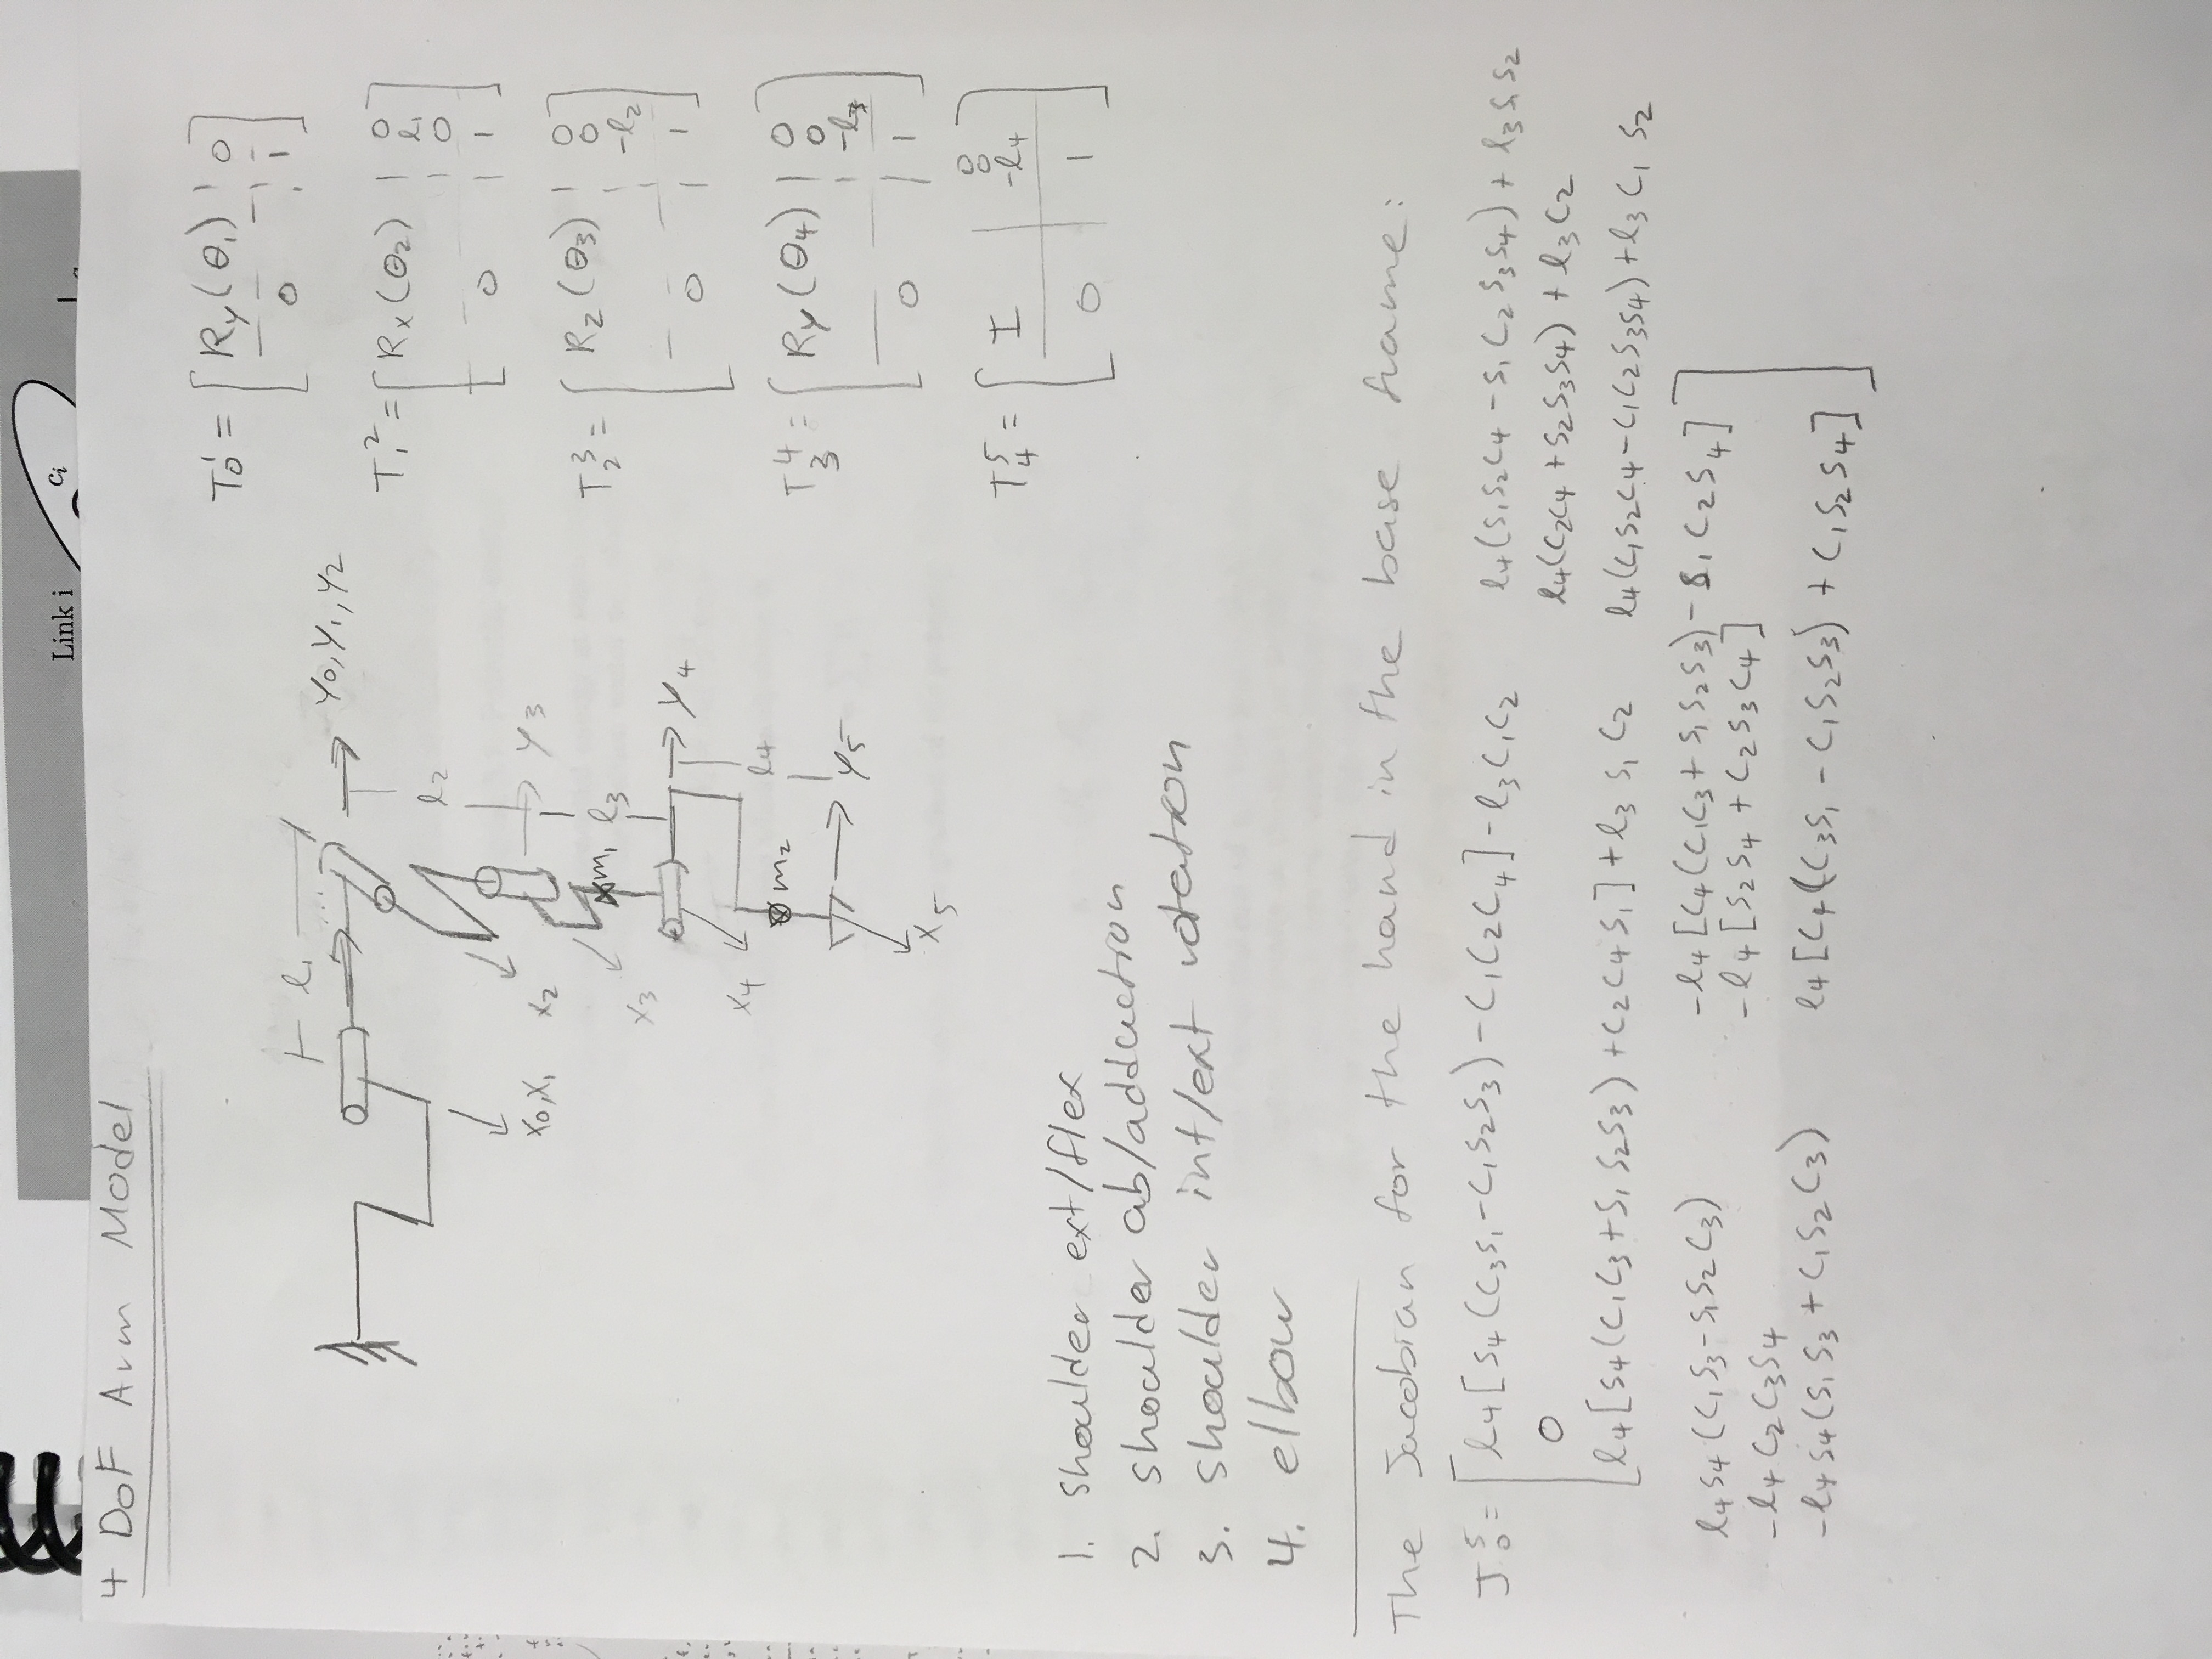 Link i
cᵢ
4 DoF Arm Model
T₀¹ = [ R_y(θ₁) | 0
0 | 1 ]
T₁² = [ R_x(θ₂) | 0
l₁
0
0 | 1 ]
T₂³ = [ R_z(θ₃) | 0
0
-l₂
0 | 1 ]
T₃⁴ = [ R_y(θ₄) | 0
0
-l₃
0 | 1 ]
T₄⁵ = [ I | 0
0
-l₄
0 | 1 ]
l₁
y₀, y₁, y₂
l₂
x₀, x₁
x₂
y₃
m₁
l₃
x₃
y₄
x₄
l₄
m₂
y₅
x₅
1. shoulder ext/flex
2. shoulder ab/adduction
3. shoulder int/ext rotation
4. elbow
The Jacobian for the hand in the base frame:
J₀⁵ = [ l₄[s₄(c₃s₁-c₁s₂s₃)-c₁c₂c₄]-l₃c₁c₂ l₄(s₁s₂c₄-s₁c₂s₃s₄)+l₃s₁s₂
0 l₄(c₂c₄+s₂s₃s₄)+l₃c₂
l₄[s₄(c₁c₃+s₁s₂s₃)+c₂c₄s₁]+l₃s₁c₂ l₄(c₁s₂c₄-c₁c₂s₃s₄)+l₃c₁s₂
l₄s₄(c₁s₃-s₁s₂c₃) -l₄[c₄(c₁c₃+s₁s₂s₃)-s₁c₂s₄]
-l₄c₂c₃s₄ -l₄[s₂s₄+c₂s₃c₄]
-l₄s₄(s₁s₃+c₁s₂c₃) l₄[c₄(c₃s₁-c₁s₂s₃)+c₁s₂s₄] ]